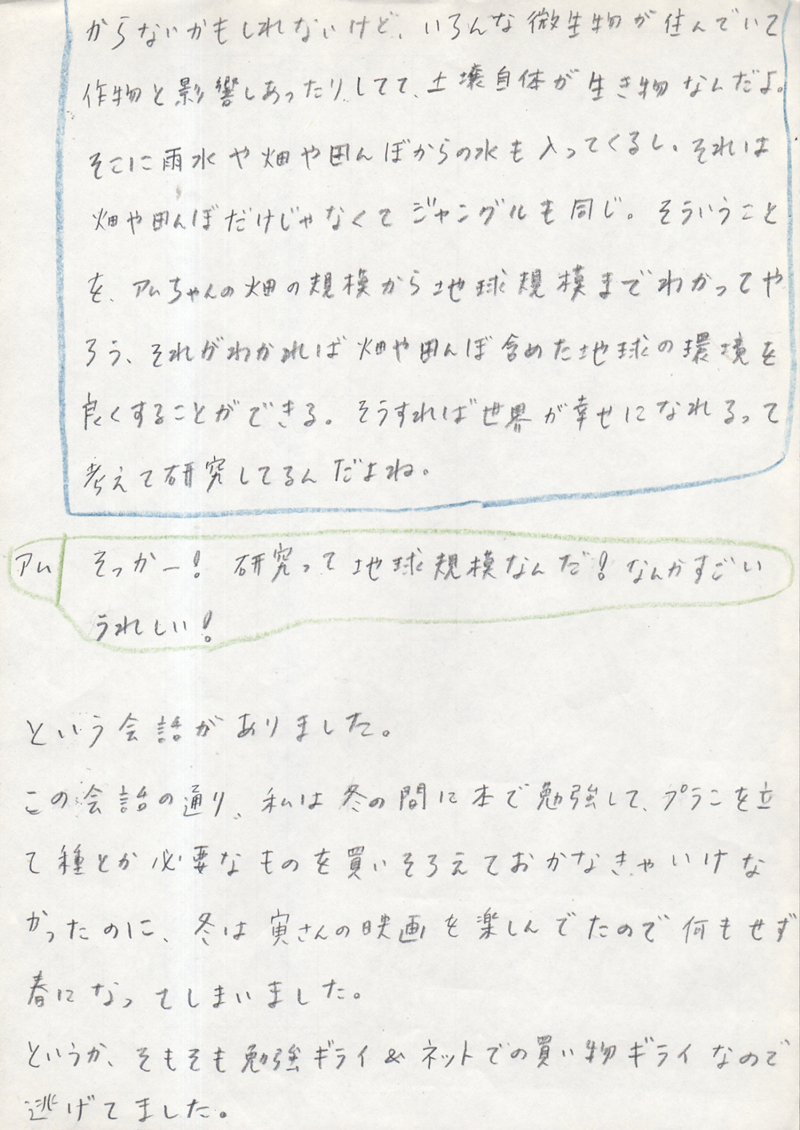 からないかもしれないけど、いろんな微生物が住んでいて
作物と影響しあったりしてて、土壌自体が生き物なんだよ。
そこに雨水や畑や田んぼからの水も入ってくるし、それは
畑や田んぼだけじゃなくてジャングルも同じ。そういうこと
を、アムちゃんの畑の規模から地球規模までわかってや
ろう、それがわかれば畑や田んぼ含めた地球の環境を
良くすることができる。そうすれば世界が幸せになれるって
考えて研究してるんだよね。
アム そっかー！研究って地球規模なんだ！なんかすごい
うれしい！
という会話がありました。
この会話の通り、私は冬の間に本で勉強して、プランを立
て種とか必要なものを買いそろえておかなきゃいけな
かったのに、冬は寅さんの映画を楽しんでたので何もせず
春になってしまいました。
というか、そもそも勉強ギライ&ネットでの買い物ギライなので
逃げてました。